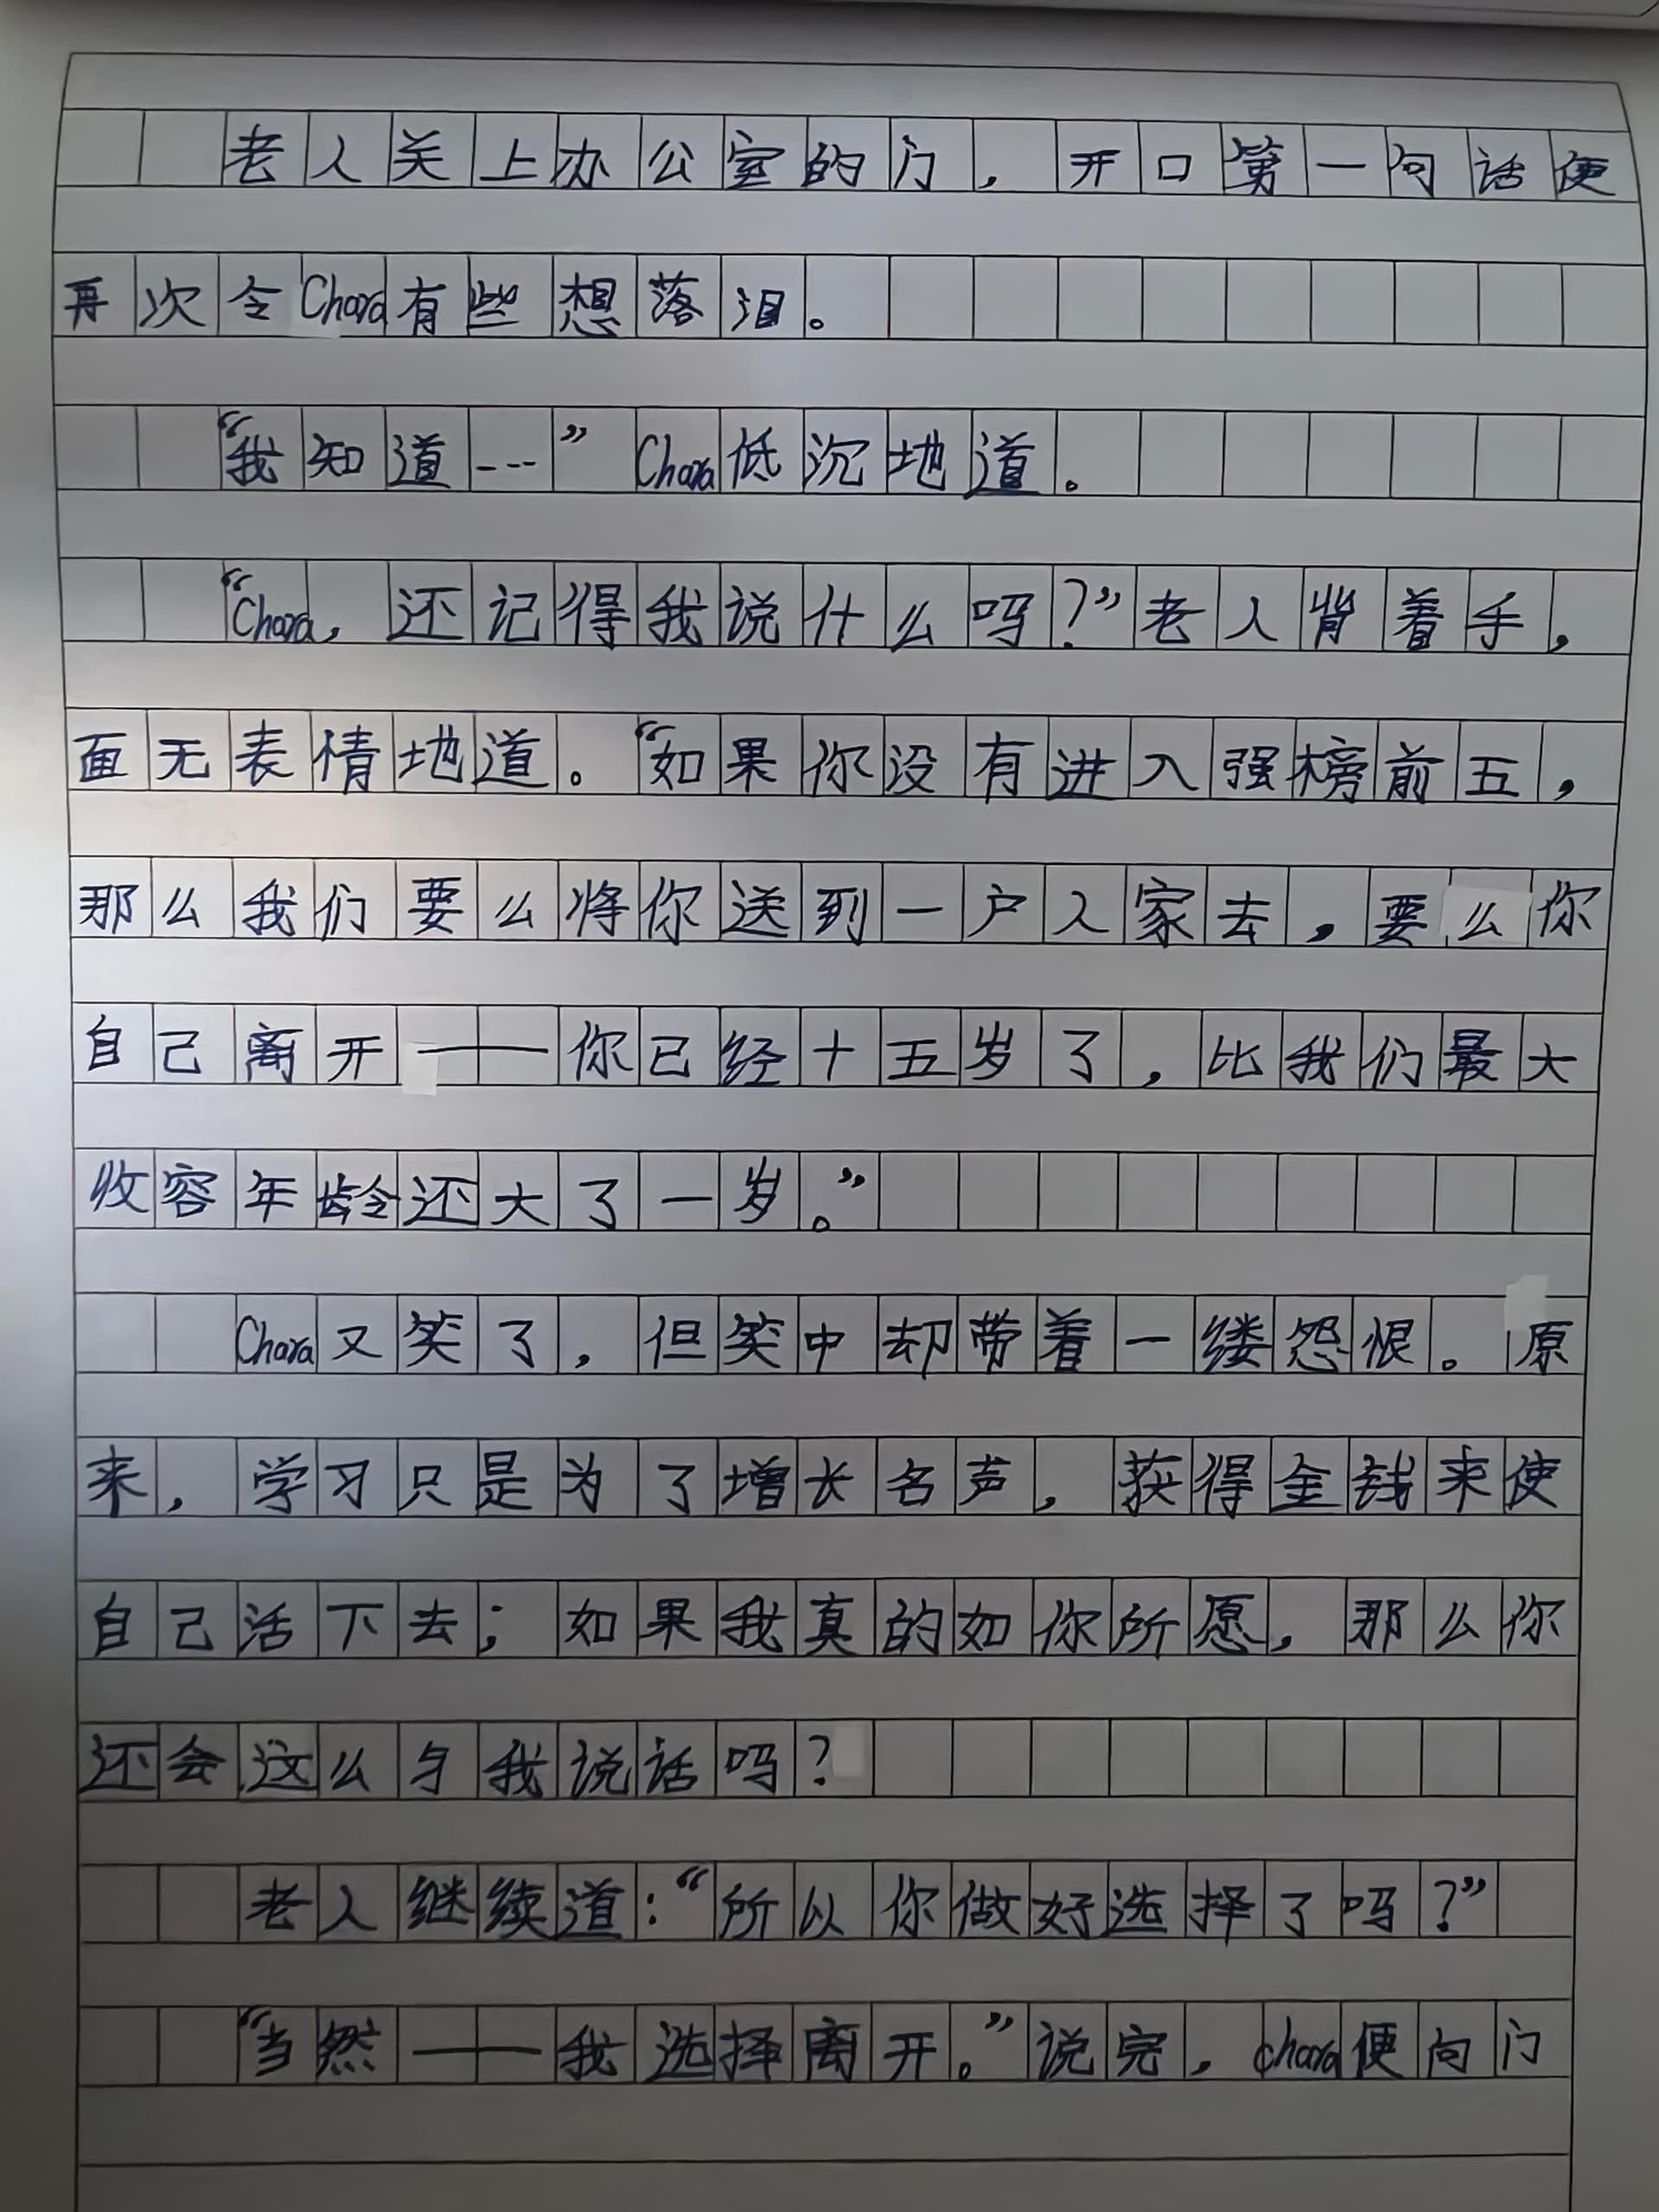 老人关上办公室的门，开口第一句话便
再次令Chara有些想落泪。
“我知道---”Chara低沉地道。
“Chara，还记得我说什么吗？”老人背着手，
面无表情地道。“如果你没有进入强榜前五，
那么我们要么将你送到一户人家去，要么你
自己离开——你已经十五岁了，比我们最大
收容年龄还大了一岁。”
Chara又笑了，但笑中却带着一缕怨恨。原
来，学习只是为了增长名声，获得金钱来使
自己活下去；如果我真的如你所愿，那么你
还会这么与我说话吗？
老人继续道：“所以你做好选择了吗？”
“当然——我选择离开。”说完，chara便向门